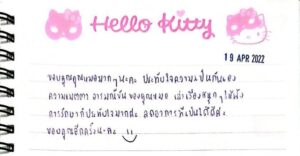 Hello Kitty
19 APR 2022
ขอบคุณคุณหมอมากๆนะคะ ประทับใจความเป็นกันเอง
ความเมตตา อารมณ์ขัน ของคุณหมอ เล่าเรื่องสนุกๆให้ฟัง
การรักษาก็ประทับใจมากค่ะ ลดอาการที่เป็นได้ดีค่ะ
ขอบคุณอีกครั้งนะคะ